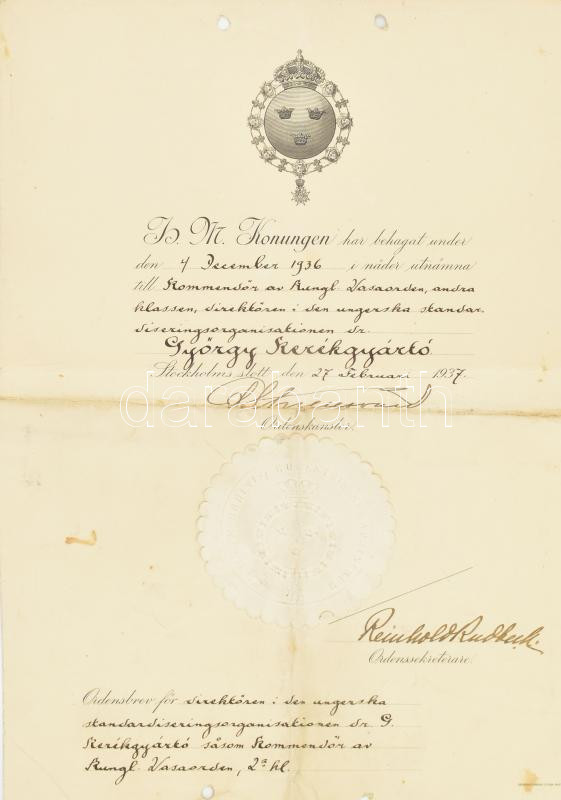 H. M. Konungen har behagat under
den 4 December 1936 i nåder utnämna
till Kommendör av Kungl. Vasaorden, andra
klassen, direktören i den ungerska standar-
diseringsorganisationen dr.
György Kerékgyártó
Stockholms slott den 27 Februari 1937.
darabanth
Ordenskansler.
Reinhold Rudbeck.
Ordenssekreterare.
Ordensbrev för direktören i den ungerska
standardiseringsorganisationen dr. G.
Kerékgyártó såsom Kommendör av
Kungl. Vasaorden, 2a kl.